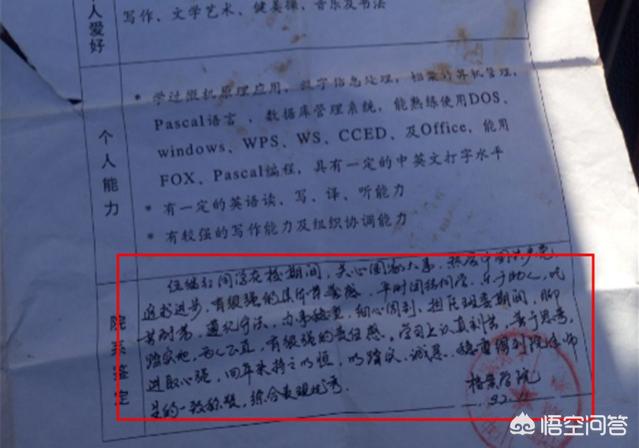 人爱好
写作、文学艺术、健美操、音乐及书法
个人能力
* 学过微机原理应用，数字信息处理，档案计算机管理，
Pascal语言，数据库管理系统，能熟练使用DOS、
windows、WPS、WS、CCED、及Office，能用
FOX、Pascal编程，具有一定的中英文打字水平
* 有一定的英语读、写、译、听能力
* 有较强的写作能力及组织协调能力
院系鉴定
在校期间，关心国家大事，热爱中国共产党
追求进步，有很强的集体荣誉感，平时团结同学，乐于助人，吃
苦耐劳，遵纪守法，办事稳重，细心周到，担任班委期间，脚
踏实地，为人公正，有很强的责任感。学习上认真刻苦，善于思考，
进取心强，四年来持之以恒，以踏实、诚恳、稳重得到院系师
生的一致称赞，综合表现优秀。
档案学院
悟空问答